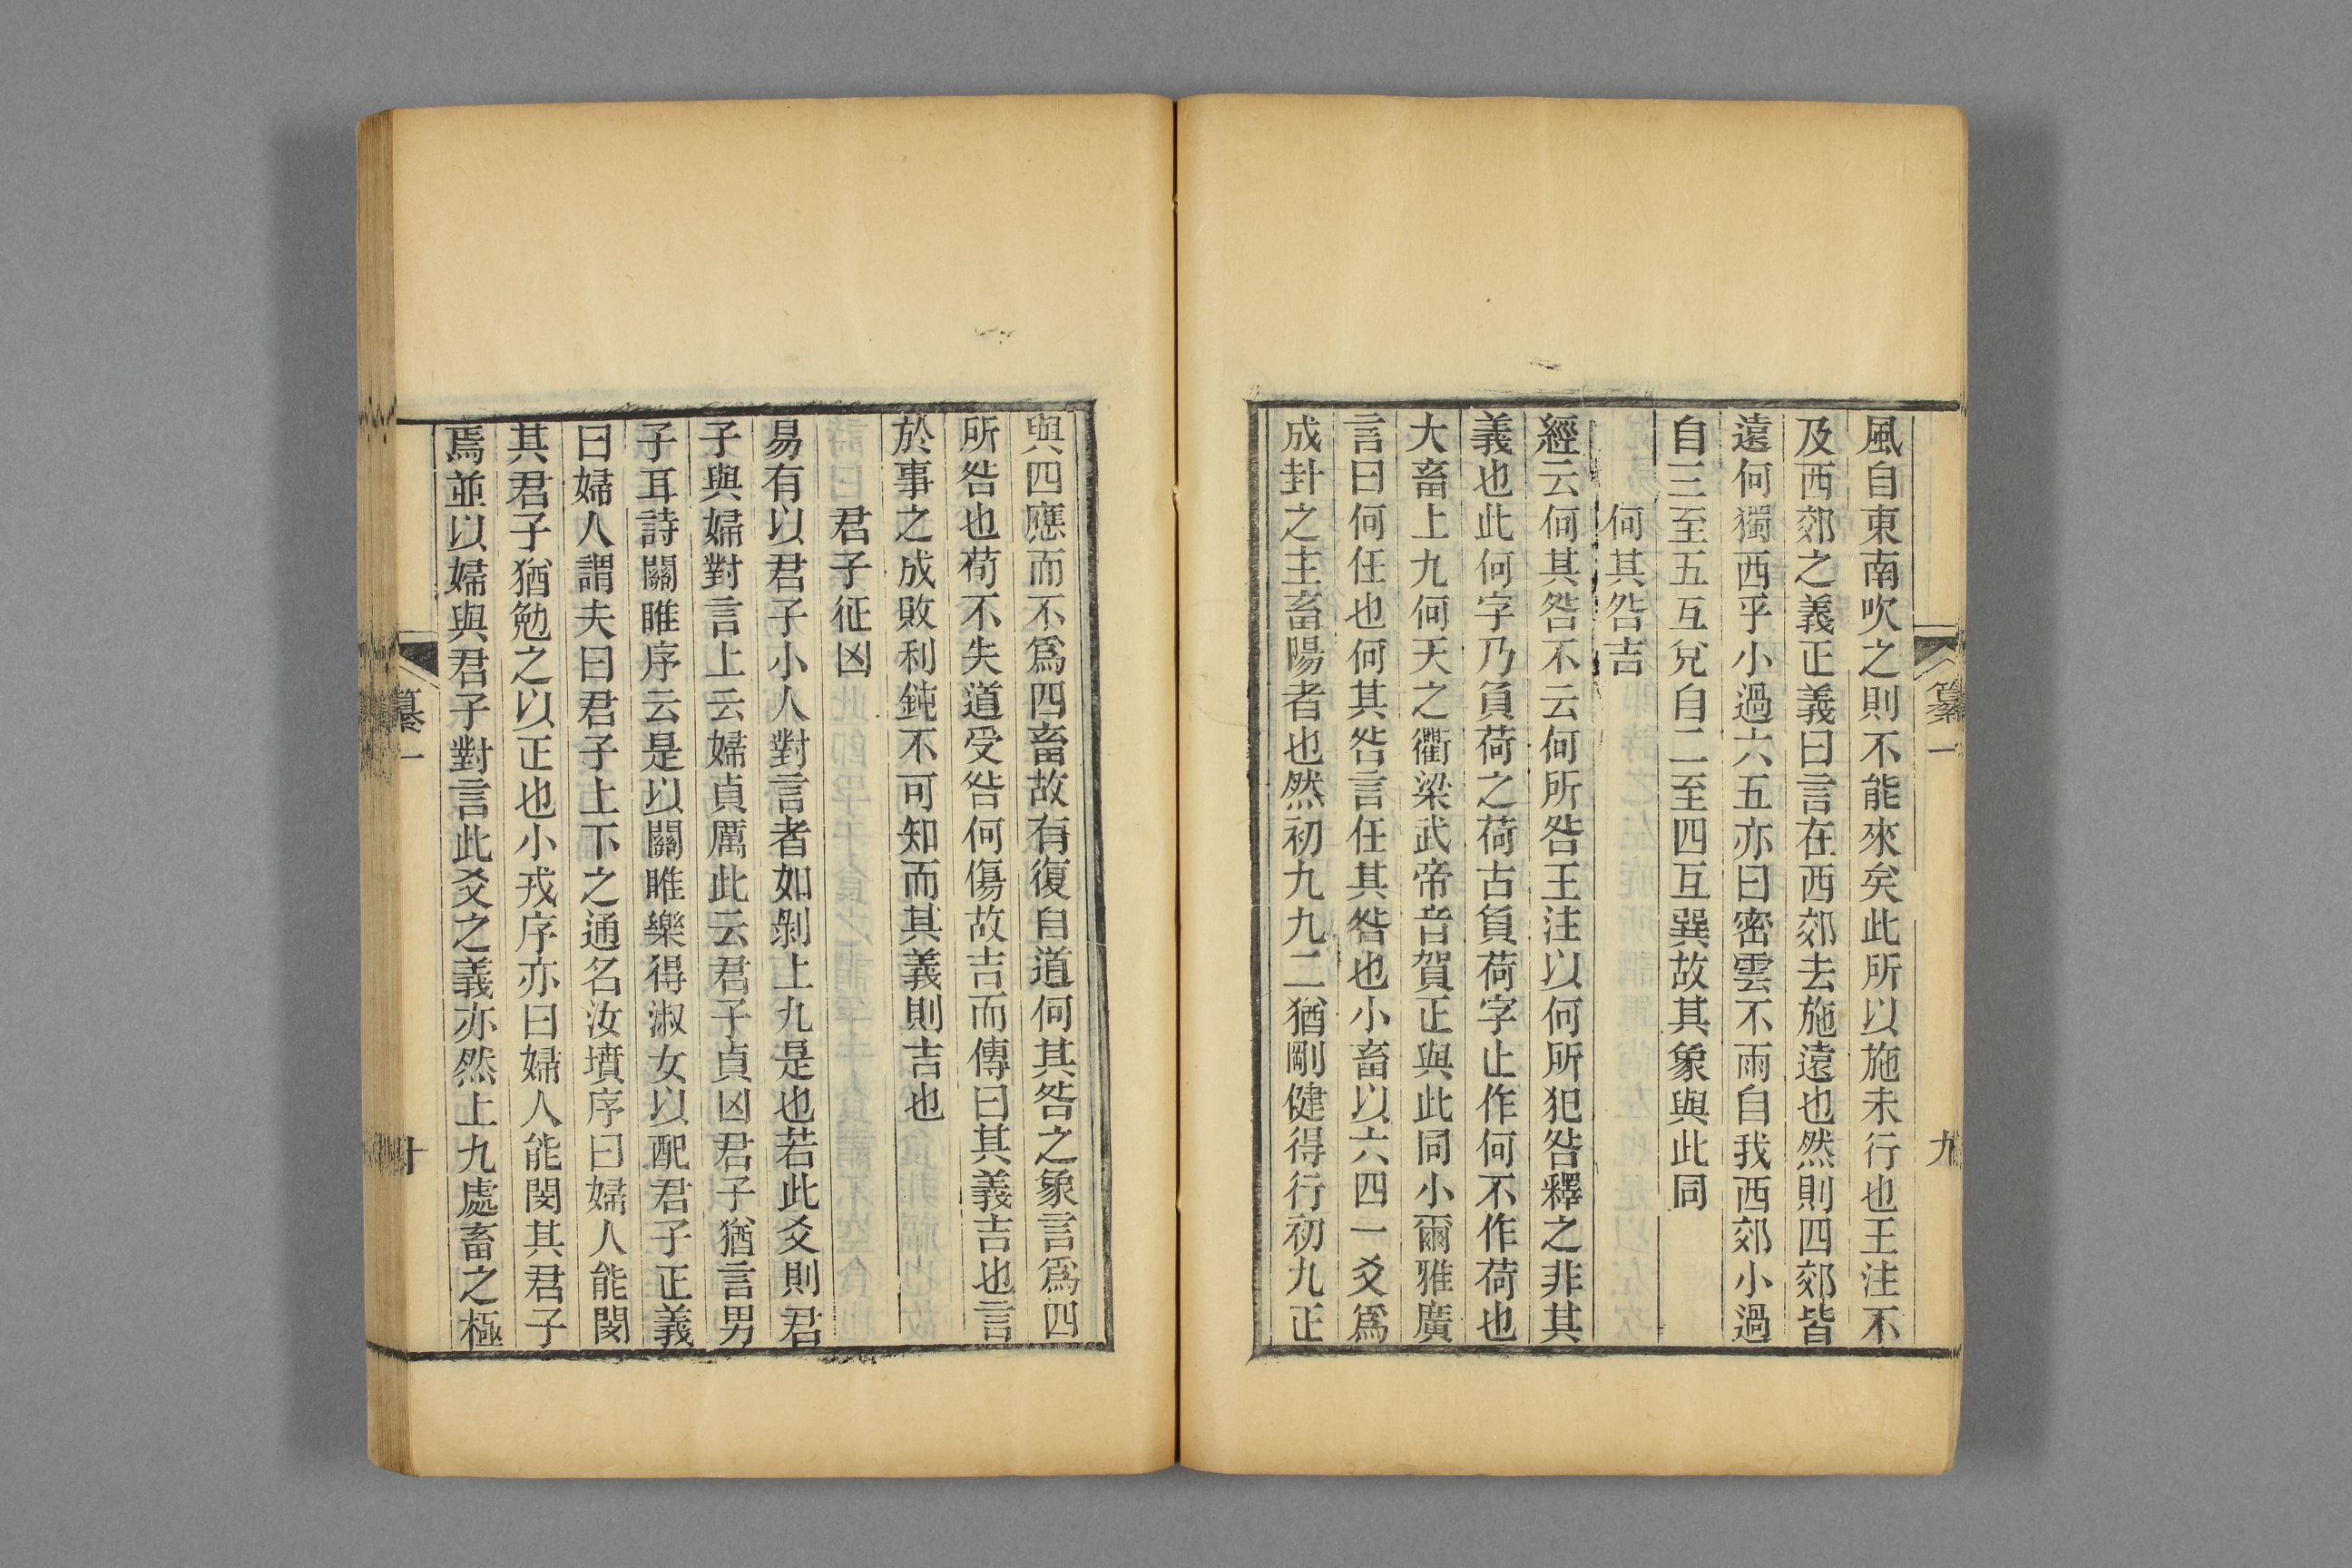 纂一
九
風自東南吹之則不能來矣此所以施未行也王注不
及西郊之義正義曰言在西郊去施遠也然則四郊皆
遠何獨西乎小過六五亦曰密雲不雨自我西郊小過
自三至五互兌自二至四互巽故其象與此同
何其咎吉
經云何其咎不云何所咎王注以何所犯咎釋之非其
義也此何字乃負荷之荷古負荷字止作何不作荷也
大畜上九何天之衢梁武帝音賀正與此同小爾雅廣
言曰何任也何其咎言任其咎也小畜以六四一爻爲
成卦之主畜陽者也然初九九二猶剛健得行初九正
與四應而不爲四畜故有復自道何其咎之象言爲四
所咎也苟不失道受咎何傷故吉而傳曰其義吉也言
於事之成敗利鈍不可知而其義則吉也
君子征凶
易有以君子小人對言者如剝上九是也若此爻則君
子與婦對言上云婦貞厲此云君子貞凶君子猶言男
子耳詩關雎序云是以關雎樂得淑女以配君子正義
曰婦人謂夫曰君子上下之通名汝墳序曰婦人能閔
其君子猶勉之以正也小戎序亦曰婦人能閔其君子
焉並以婦與君子對言此爻之義亦然上九處畜之極
纂一
十